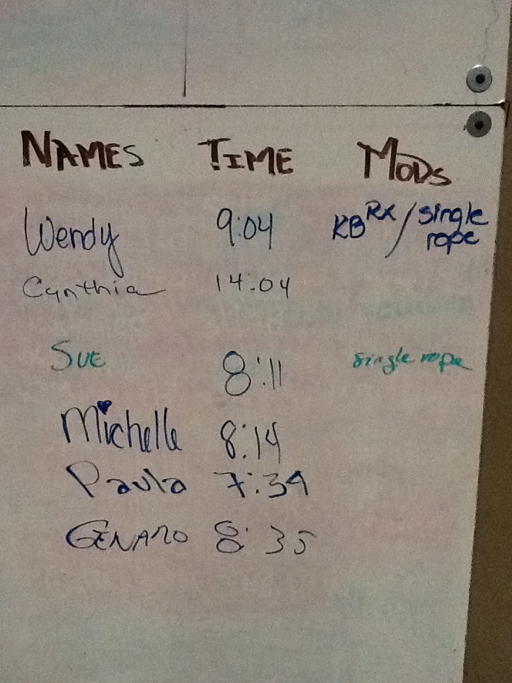 NAMES TIME MODS
Wendy 9:04 KB Rx / single rope
Cynthia 14:04
SUE 8:11 single rope
Michelle 8:14
Paula 7:34
GENARO 8:35